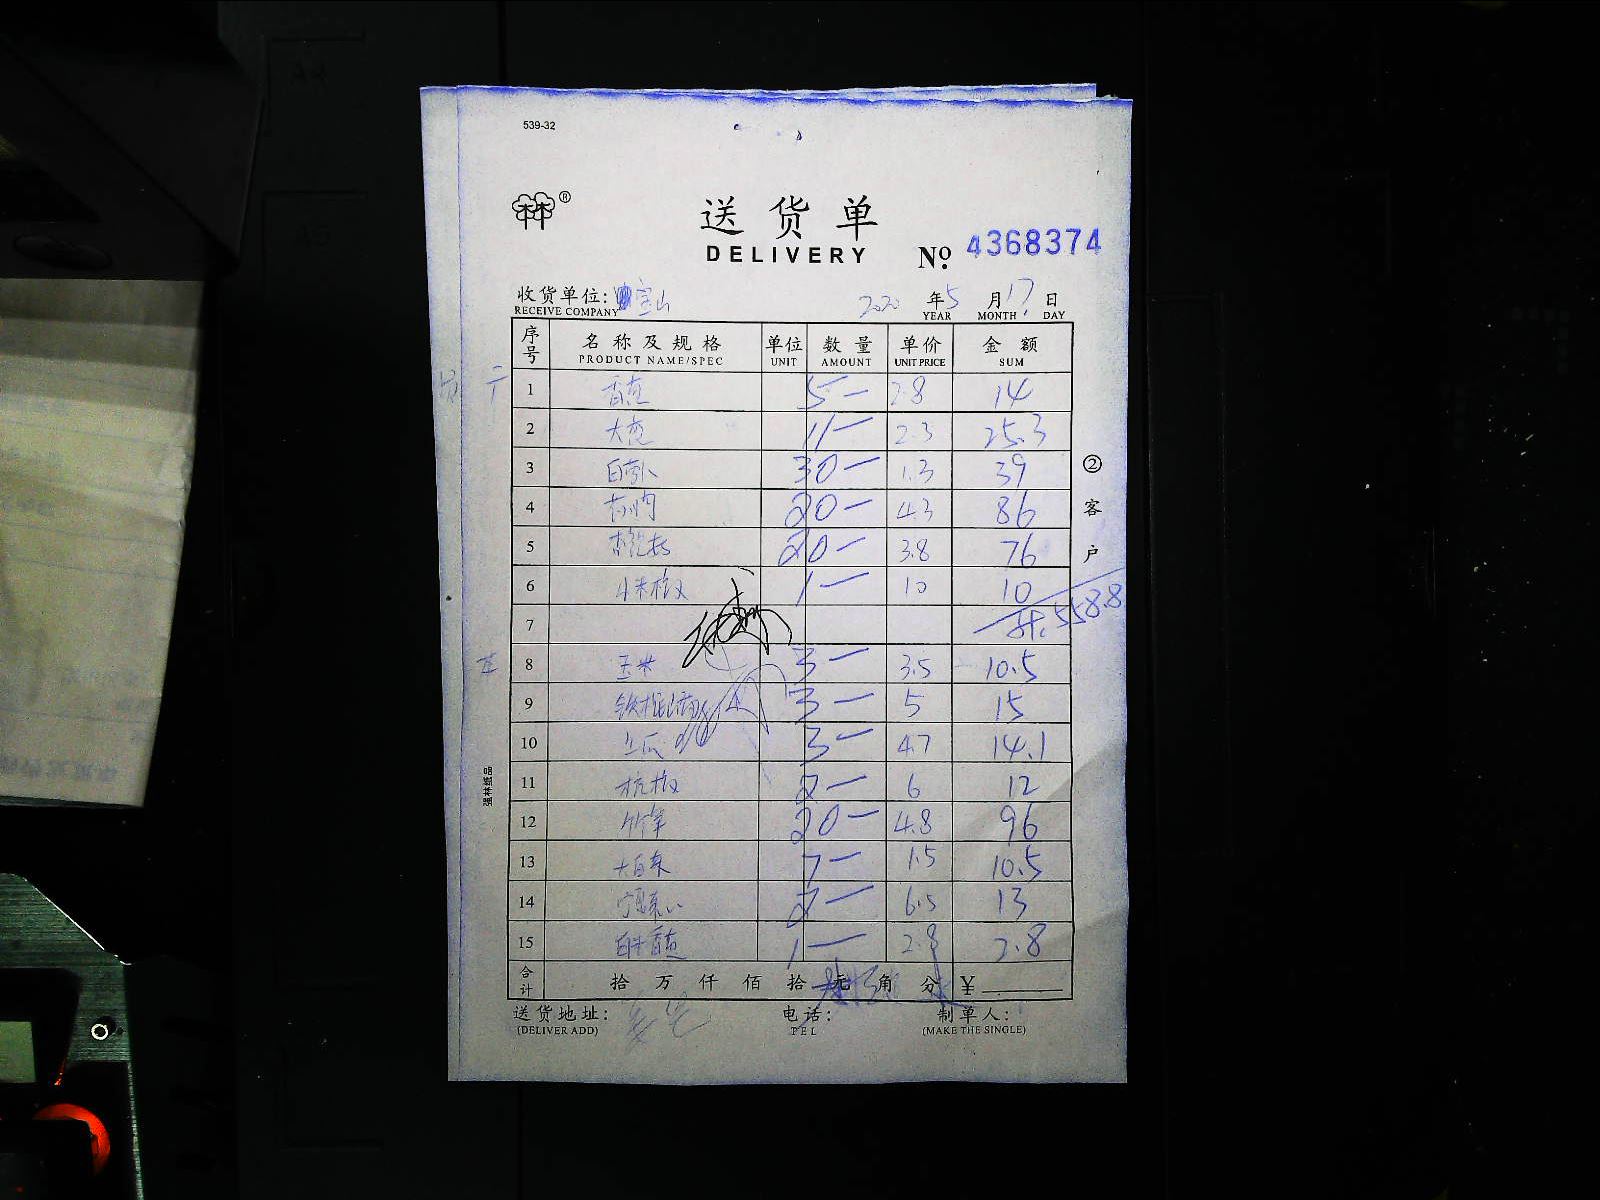 539-32
林®
送货单
DELIVERY
№ 4368374
收货单位: 宝山 2020 年 5 月 17 日
RECEIVE COMPANY YEAR MONTH DAY
序号 名称及规格 单位 数量 单价 金额
PRODUCT NAME/SPEC UNIT AMOUNT UNIT PRICE SUM
1 香芹 5 — 2.8 14
2 大葱 11 — 2.3 25.3
3 白萝卜 30 — 1.3 39
4 20 — 4.3 86
5 杏鲍菇 20 — 3.8 76
6 小米椒 1 — 10 10
7 558.8
8 玉米 3 — 3.5 10.5
9 铁棍 3 — 5 15
10 3 — 4.7 14.1
11 杭椒 2 — 6 12
12 竹笋 20 — 4.8 96
13 大白菜 7 — 1.5 10.5
14 2 — 6.5 13
15 1 — 2.8 2.8
合计 拾 万 仟 佰 拾 元 角 分 ¥
送货地址: 电话: 制单人:
(DELIVER ADD) TEL (MAKE THE SINGLE)
②客户
强林纸品